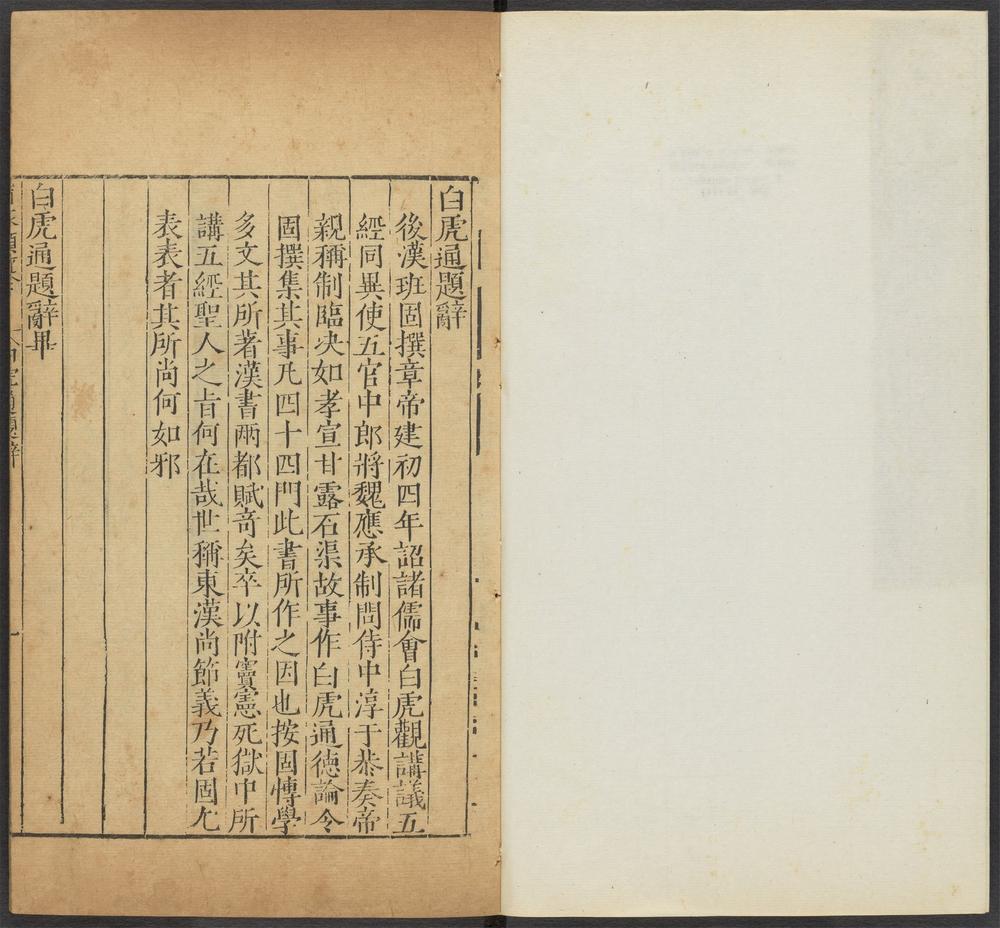 白虎通題辭
後漢班固撰章帝建初四年詔諸儒會白虎觀講議五
經同異使五官中郎將魏應承制問侍中淳于恭奏帝
親稱制臨决如孝宣甘露石渠故事作白虎通德論令
固撰集其事凡四十四門此書所作之因也按固愽學
多文其所著漢書兩都賦奇矣卒以附竇憲死獄中所
講五經聖人之旨何在哉世稱東漢尚節義乃若固尤
表表者其所尚何如邪
白虎通題辭畢